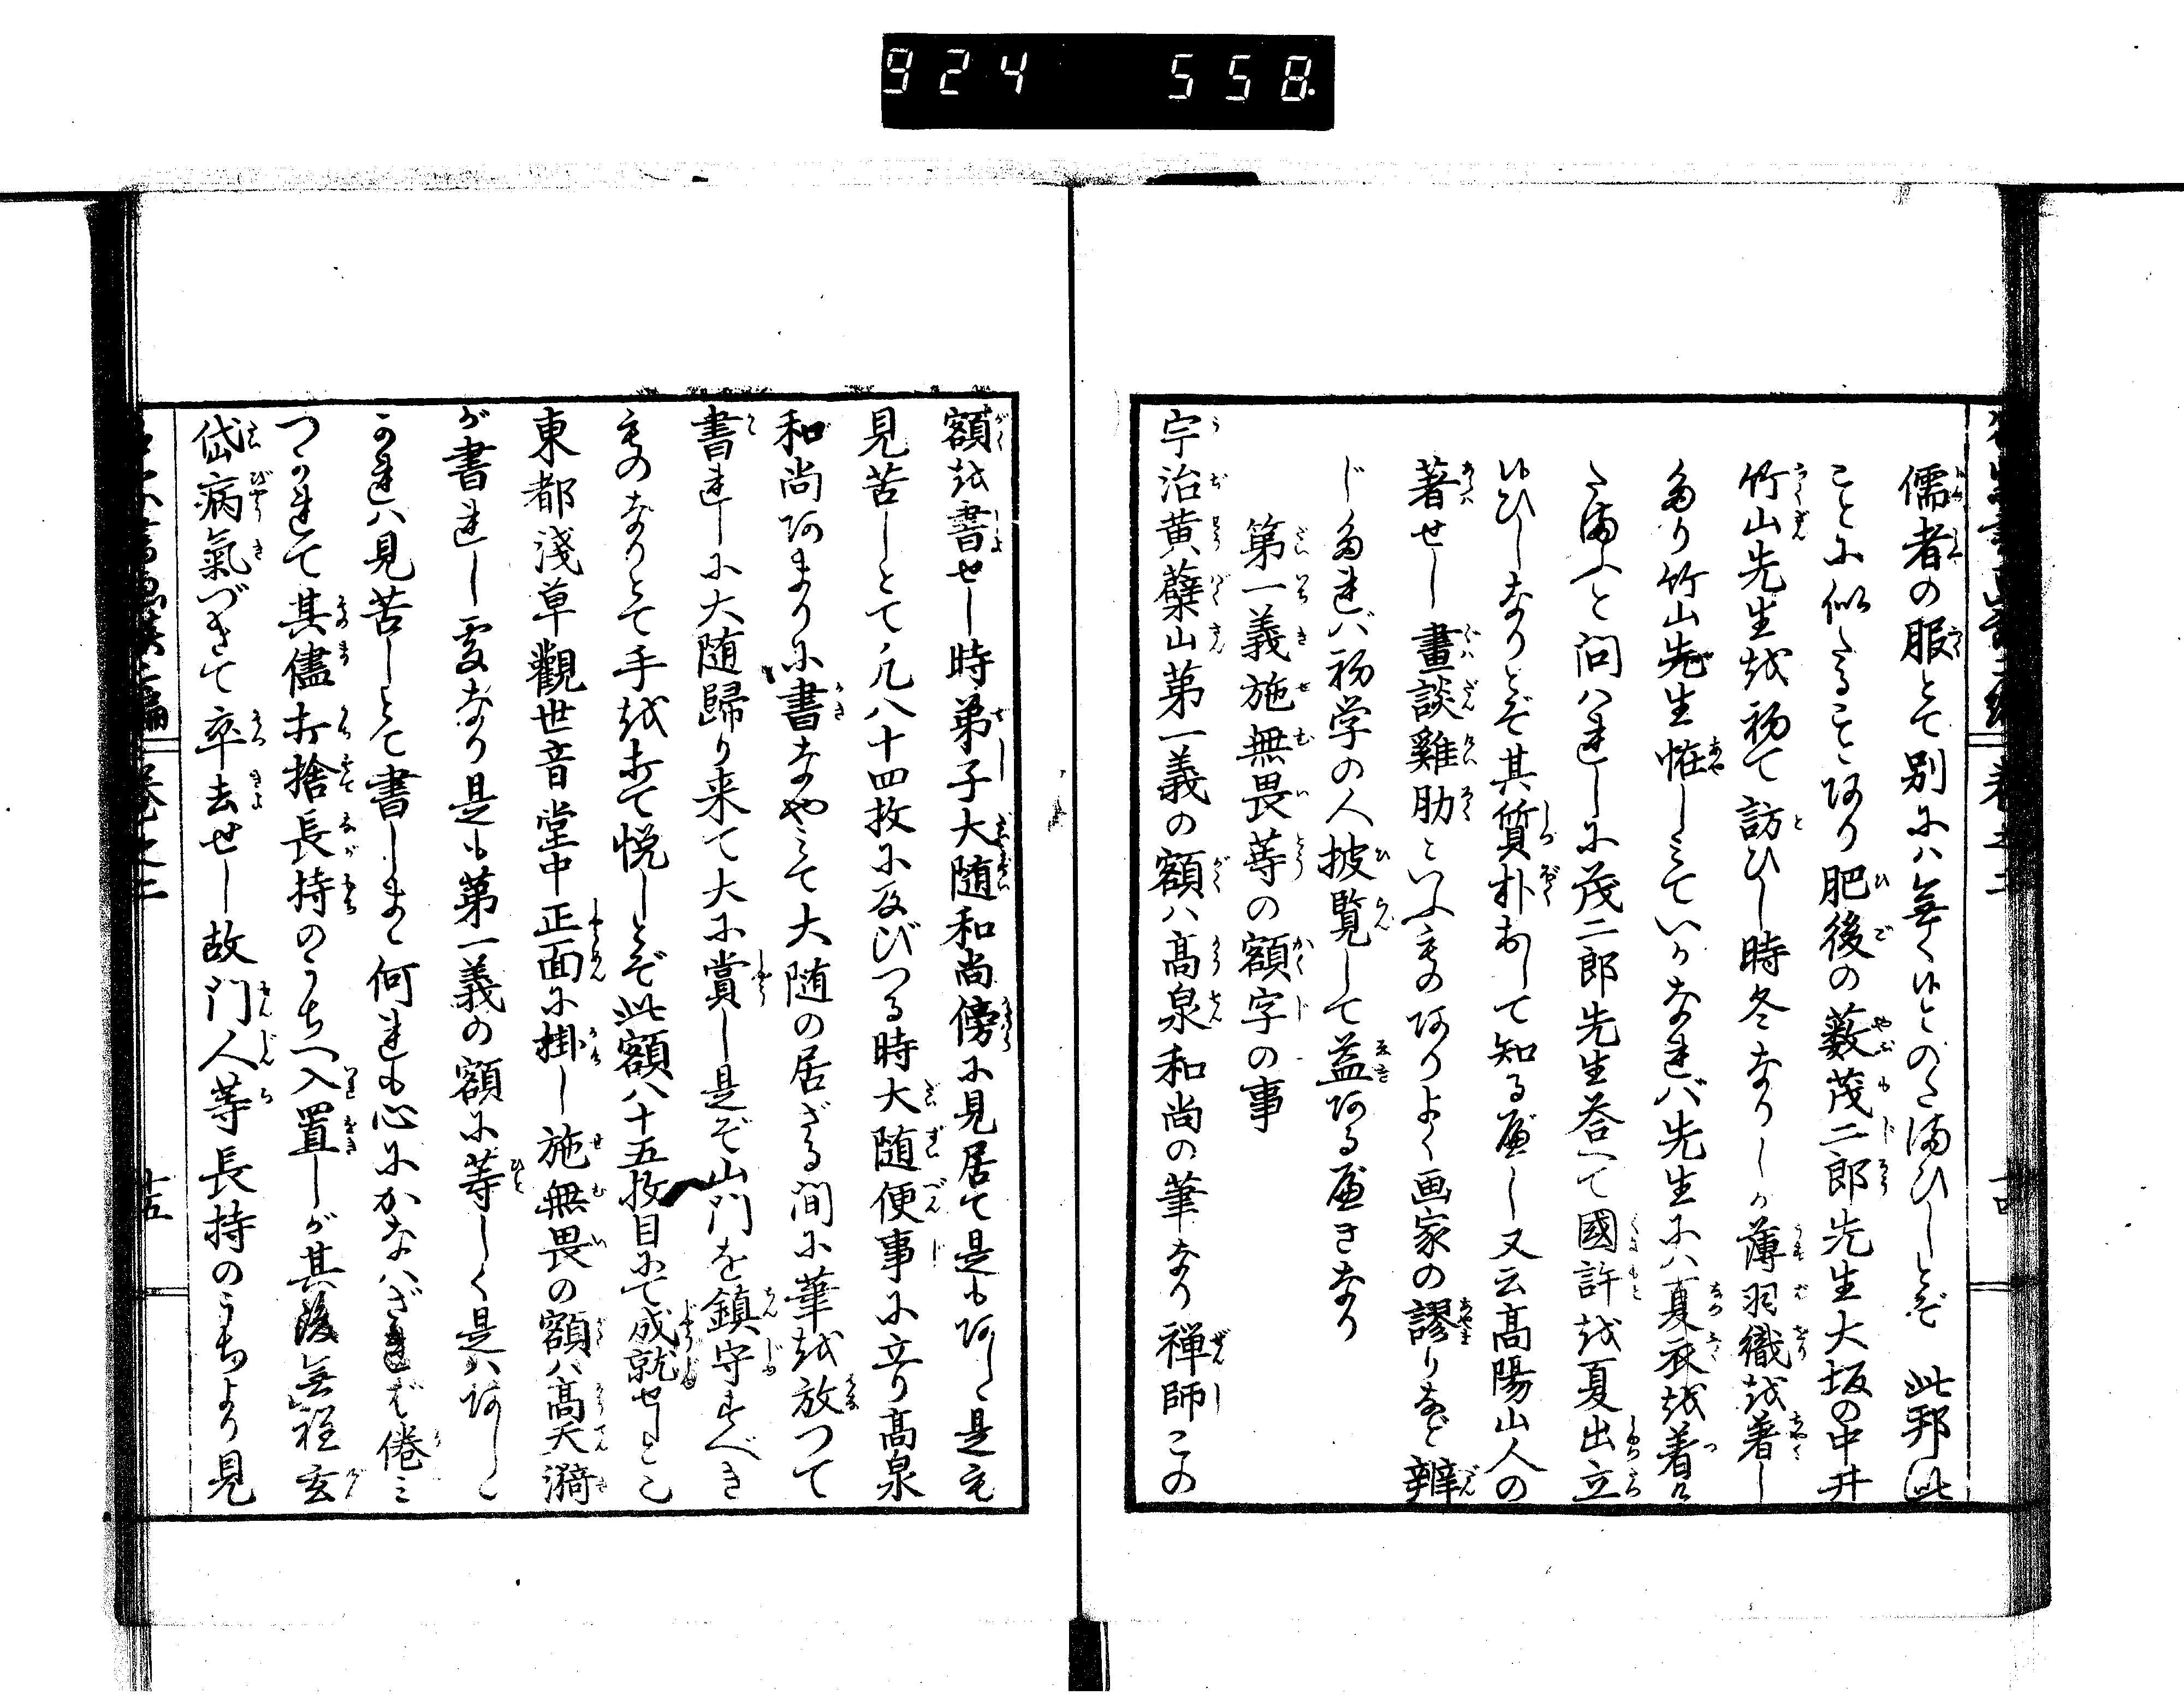 924 558
儒者の服とて別には無く候とのたまひしとぞ 此邦此
ことに似たることあり肥後の薮茂二郎先生大坂の中井
竹山先生を初て訪ひし時冬なりしが薄羽織を着し
たり竹山先生怪しみていかなれバ先生にハ夏衣を着し
たまふと問ハれしに茂二郎先生荅へて國許を夏出立
候ひしなりとぞ其質朴おして知るべし又云髙陽山人の
著せし畫談雞肋といふものありよく画家の謬りなど辨
じたれバ初学の人披覧して益あるべきなり
第一義施無畏等の額字の事
宇治黄蘗山第一義の額ハ髙泉和尚の筆なり禅師この
額を書せし時弟子大随和尚傍に見居て是もあしゝ是も
見苦しとて凡八十四枚に及びつる時大随便事に立り髙泉
和尚あまりに書なやみて大随の居ざる間に筆を放つて
書れしに大随歸り来て大に賞し是ぞ山門を鎮守すべき
ものなりとて手を打て悦しとぞ此額八十五枚目にて成就せしとこ
東都淺草觀世音堂中正面に掛し施無畏の額ハ髙天漪
が書れし處なり是も第一義の額に等しく是ハあしこ
かれハ見苦しとて書しまゝ何れも心にかなハざれば倦み
つかれて其儘打捨長持のうちへ入置しが其後無程玄
岱病氣づきて卒去せし故門人等長持のうちより見